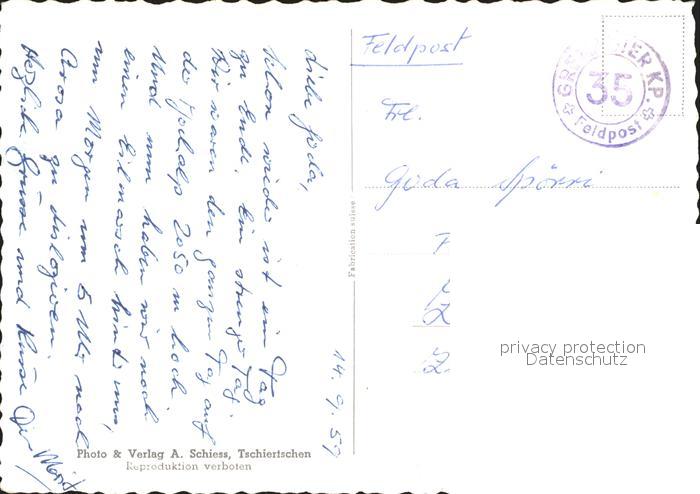 14.9.57
Liebe Goda,
Schon wieder ist ein Tag
zu Ende. Ein strenger Tag.
Wir waren den ganzen Tag auf
der Jochalp 2050 m hoch
Und nun haben wir noch
einen Eilmarsch hinter uns,
um Morgen um 5 Uhr nach
Arosa zu dislozieren.
Herzliche Grüsse und Küsse Dein
Photo & Verlag A. Schiess, Tschiertschen
Reproduktion verboten
Fabrication suisse
Feldpost
GRENADIER KP.
35
Feldpost
Frl.
Goda Spörri
privacy protection
Datenschutz